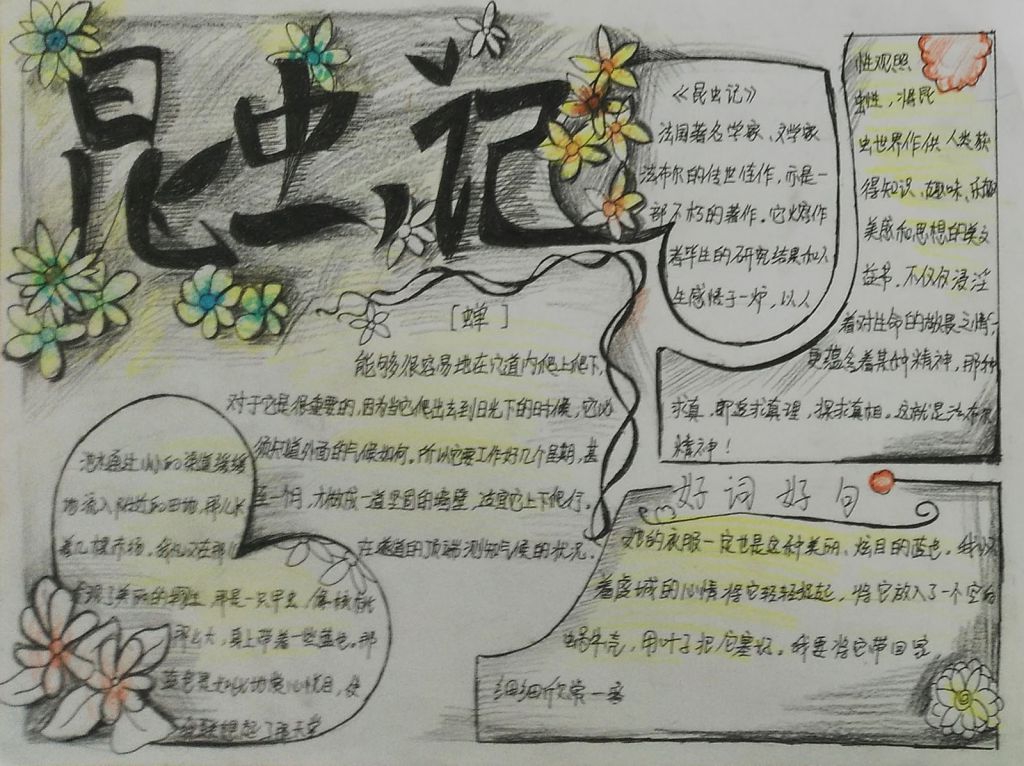 昆虫记
《昆虫记》
法国著名学家、文学家
法布尔的传世佳作，亦是一
部不朽的著作。它熔作
者毕生的研究结果和人
生感悟于一炉，以人
性观照
虫性，将昆
虫世界作供人类获
得知识、趣味、乐趣
美感和思想的美文
益书。不仅仅浸淫
着对生命的敬畏之情，
更蕴含着某种精神，那种
求真，即追求真理，探求真相。这就是法布尔
精神！
[蝉]
能够很容易地在穴道内爬上爬下，
对于它是很重要的，因为当它爬出去到日光下的时候，它必
须知道外面的气候如何。所以它要工作好几个星期，甚
至一个月，才做成一道坚固的墙壁，适宜它上下爬行。
在隧道的顶端测知气候的状况。
池水通过小小的渠道缓缓
地流入附近的田地，那儿长
着几棵
那是一只甲虫，像核桃
那么大，身上带着一些蓝色。那
蓝色是如此地赏心悦目，使
联想起了天堂
好词好句
她的衣服一定也是这种美丽、炫目的蓝色。我怀
着虔诚的心情将它轻轻捉起，将它放入了一个空的
蜗牛壳，用叶子把它塞好。我要将它带回家，
细细欣赏一番